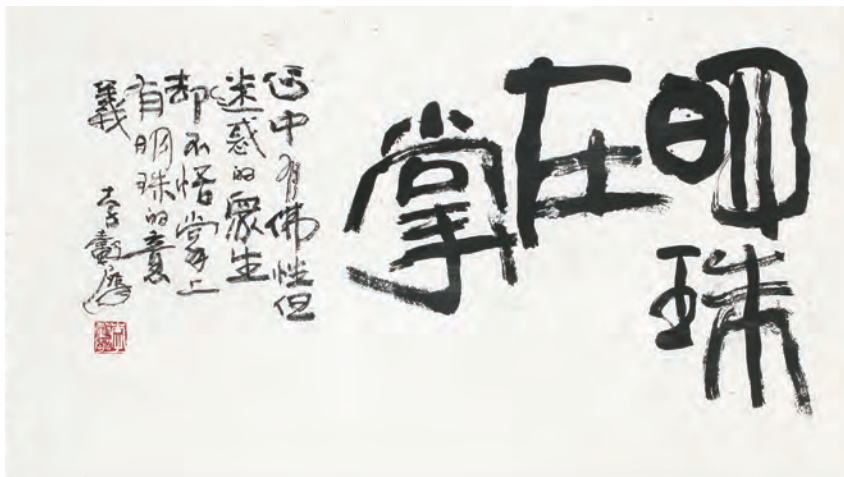 明珠
在
掌
中有佛性但
迷惑的眾生
却不悟掌上
有明珠的意
義